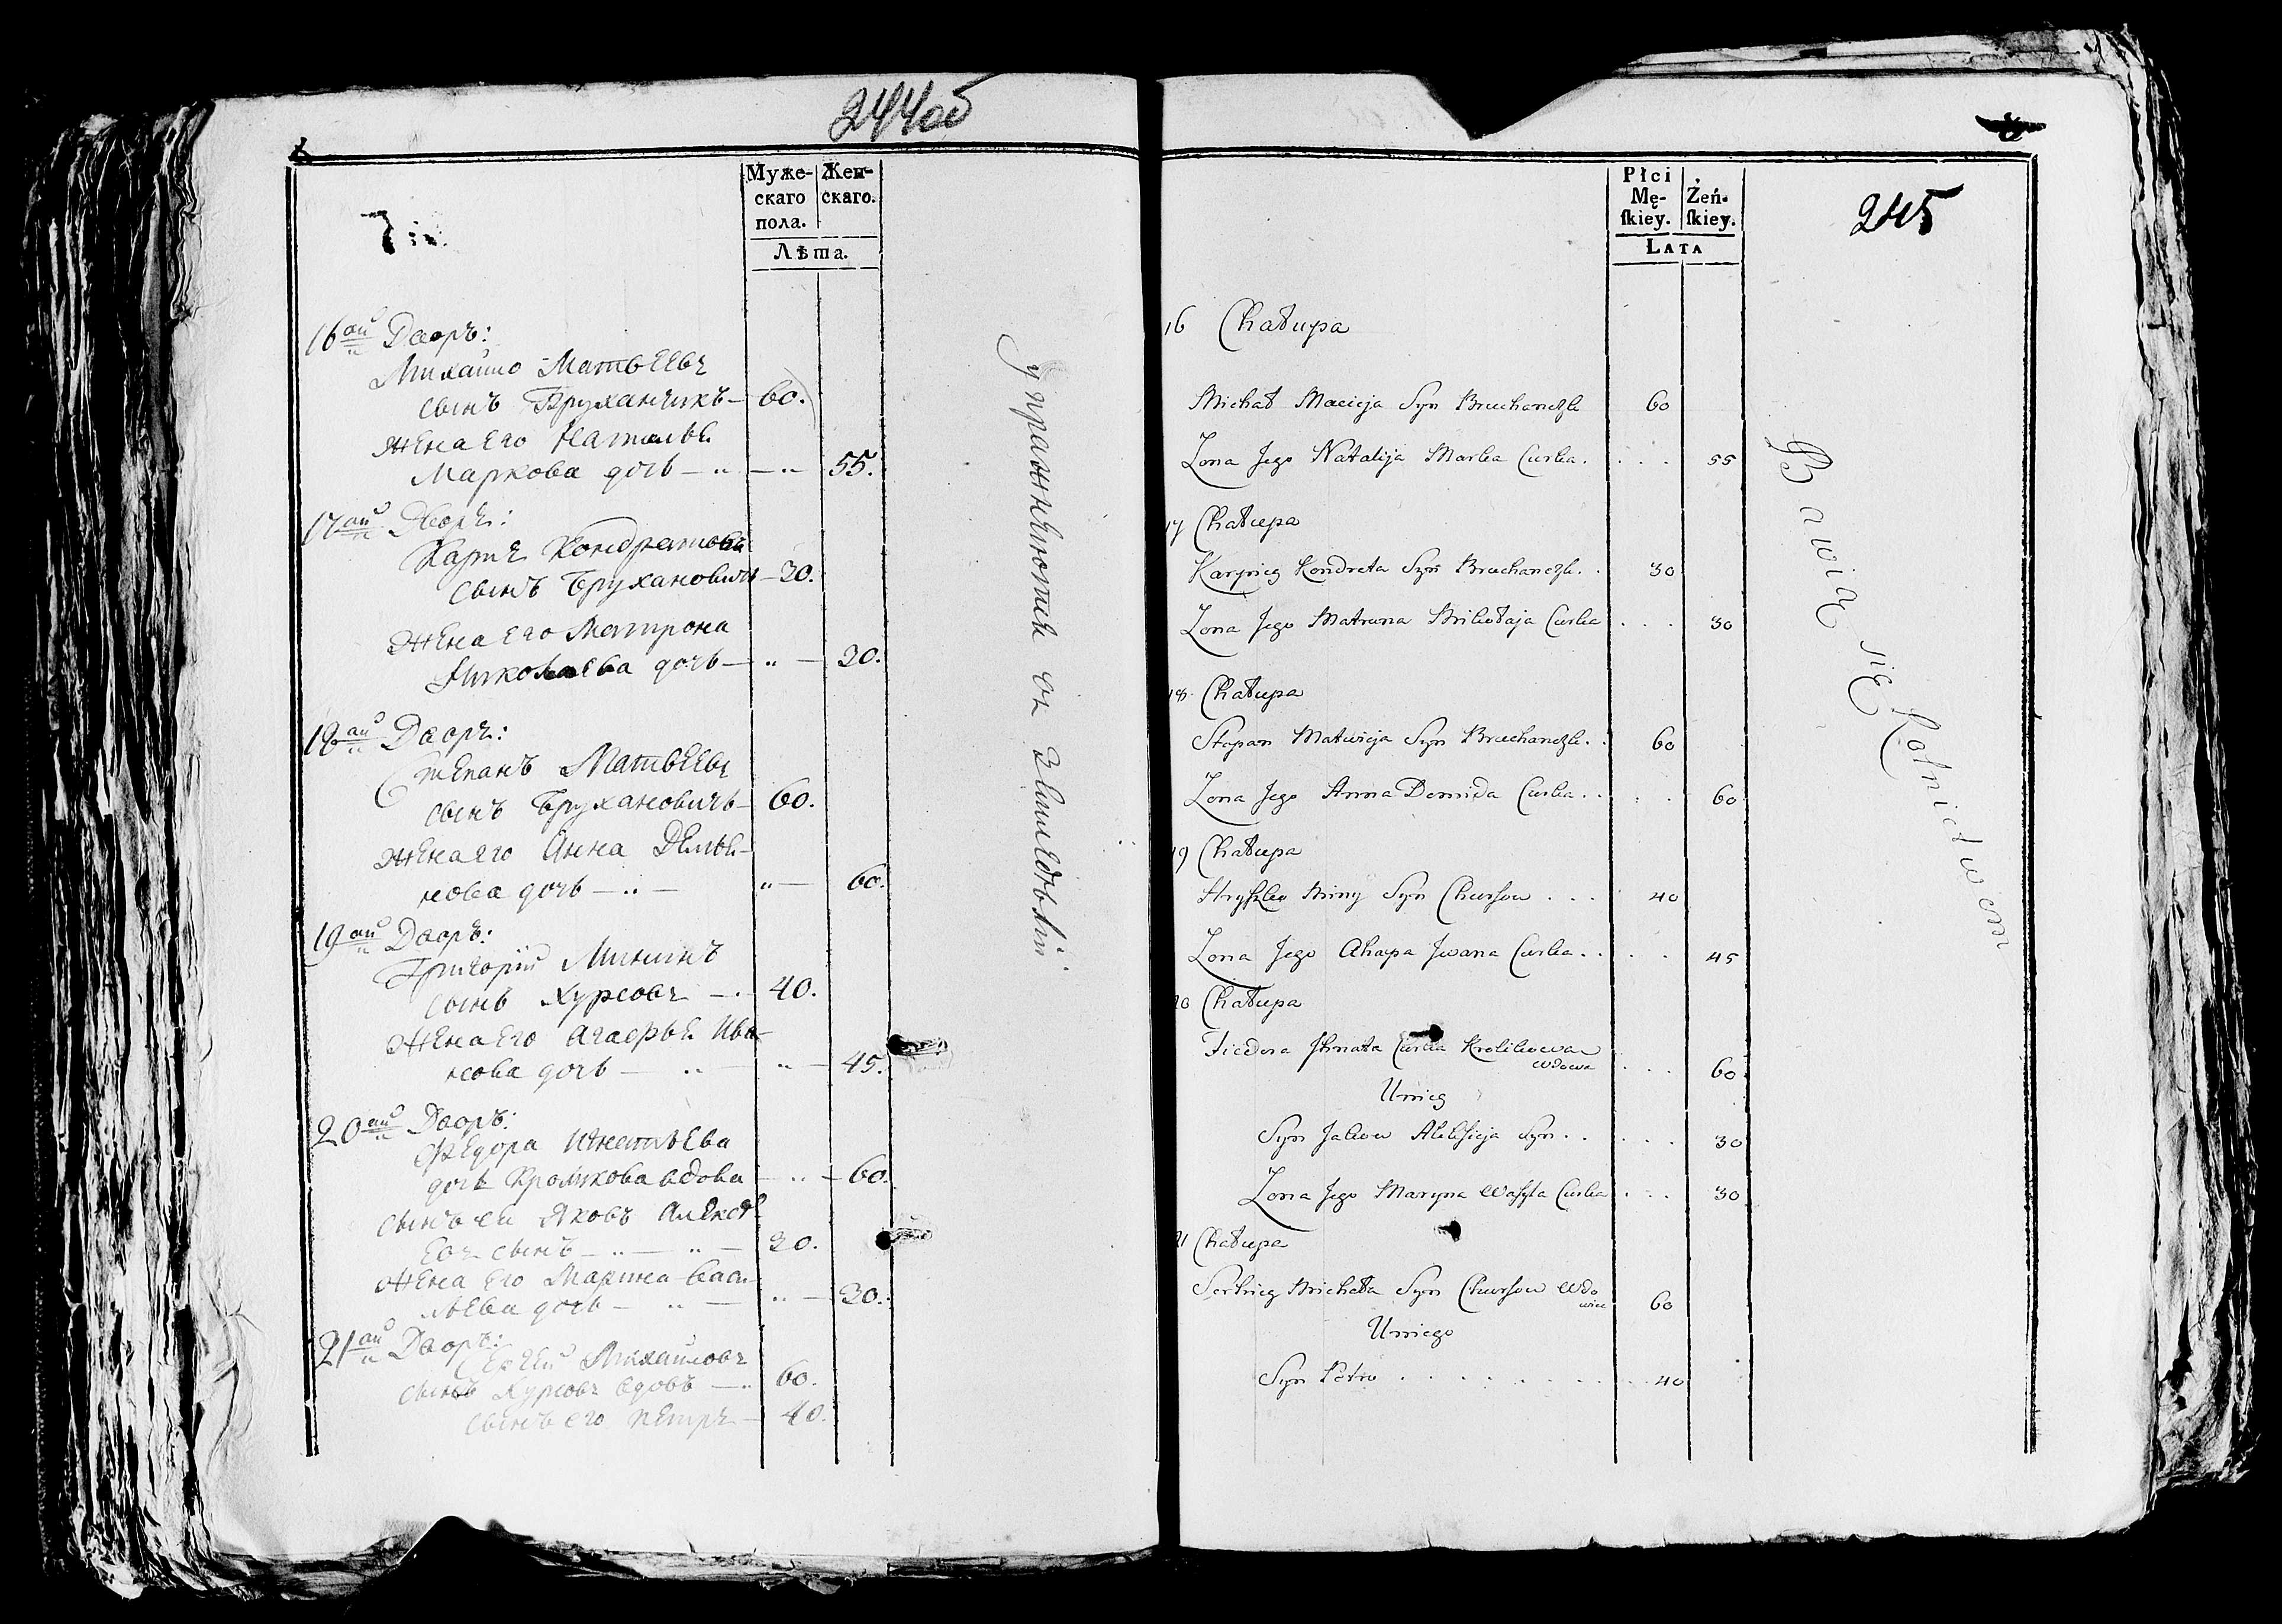 244об
Муже-
скаго
пола.
Жен-
скаго.
Лѣта.
16ый Дворъ:
Михайло Матвеевъ
сынъ Бруханчикъ — 60.
жена его Наталья
Маркова дочь — 55.
17ый Дворъ:
Карпъ Кондратовъ
сынъ Брухановичъ — 30.
жена его Матрона
Николаева дочь — 30.
18ый Дворъ:
Степанъ Матвеевъ
сынъ Брухановичъ — 60.
жена его Анна Демья-
нова дочь — 60.
19ый Дворъ:
Григорій Мининъ
сынъ Хурсовъ — 40.
жена его Агафья Ива-
нова дочь — 45.
20ый Дворъ:
Федора Игнатьева
дочь Кроликова вдова — 60.
сынъ ея Яковъ Алексѣ
евъ сынъ — 30.
жена его Марина Васи
льева дочь — 30.
21ый Дворъ:
Сергей Михайловъ
сынъ Хурсовъ вдовъ — 60.
сынъ его Петръ — 40.
упражняются въ земледѣліи.
Płci
Mę-
ſkiey.
Żeń-
ſkiey.
LATA
245
16 Chałupa
Michał Macieja Syn Bruchańczyk 60
Zona Jego Natalija Marka Curka . . . 55
17 Chałupa
Karpiey Kondrata Syn Bruchańczyk . 30
Zona Jego Matruna Mikołaja Curka . . . 30
18 Chałupa
Stepan Matwieja Syn Bruchańczyk . 60
Zona Jego Anna Demida Curka . . . . 60
19 Chałupa
Hryszko Miny Syn Chursow . . . 40
Zona Jego Ahapa Jwana Curka . . . . 45
20 Chałupa
Fiedora Jhnata Curka Krolikowa
wdowa . . . 60
U niey
Syn Jakow Alekſieja Syn . . . . . 30
Zona Jego Maryna Waſyla Curka . . . 30
21 Chałupa
Serhiey Michała Syn Chursow Wdo
wiec 60
U niego
Syn Petro . . . . . . . . 40
Bawią się Rolnictwem